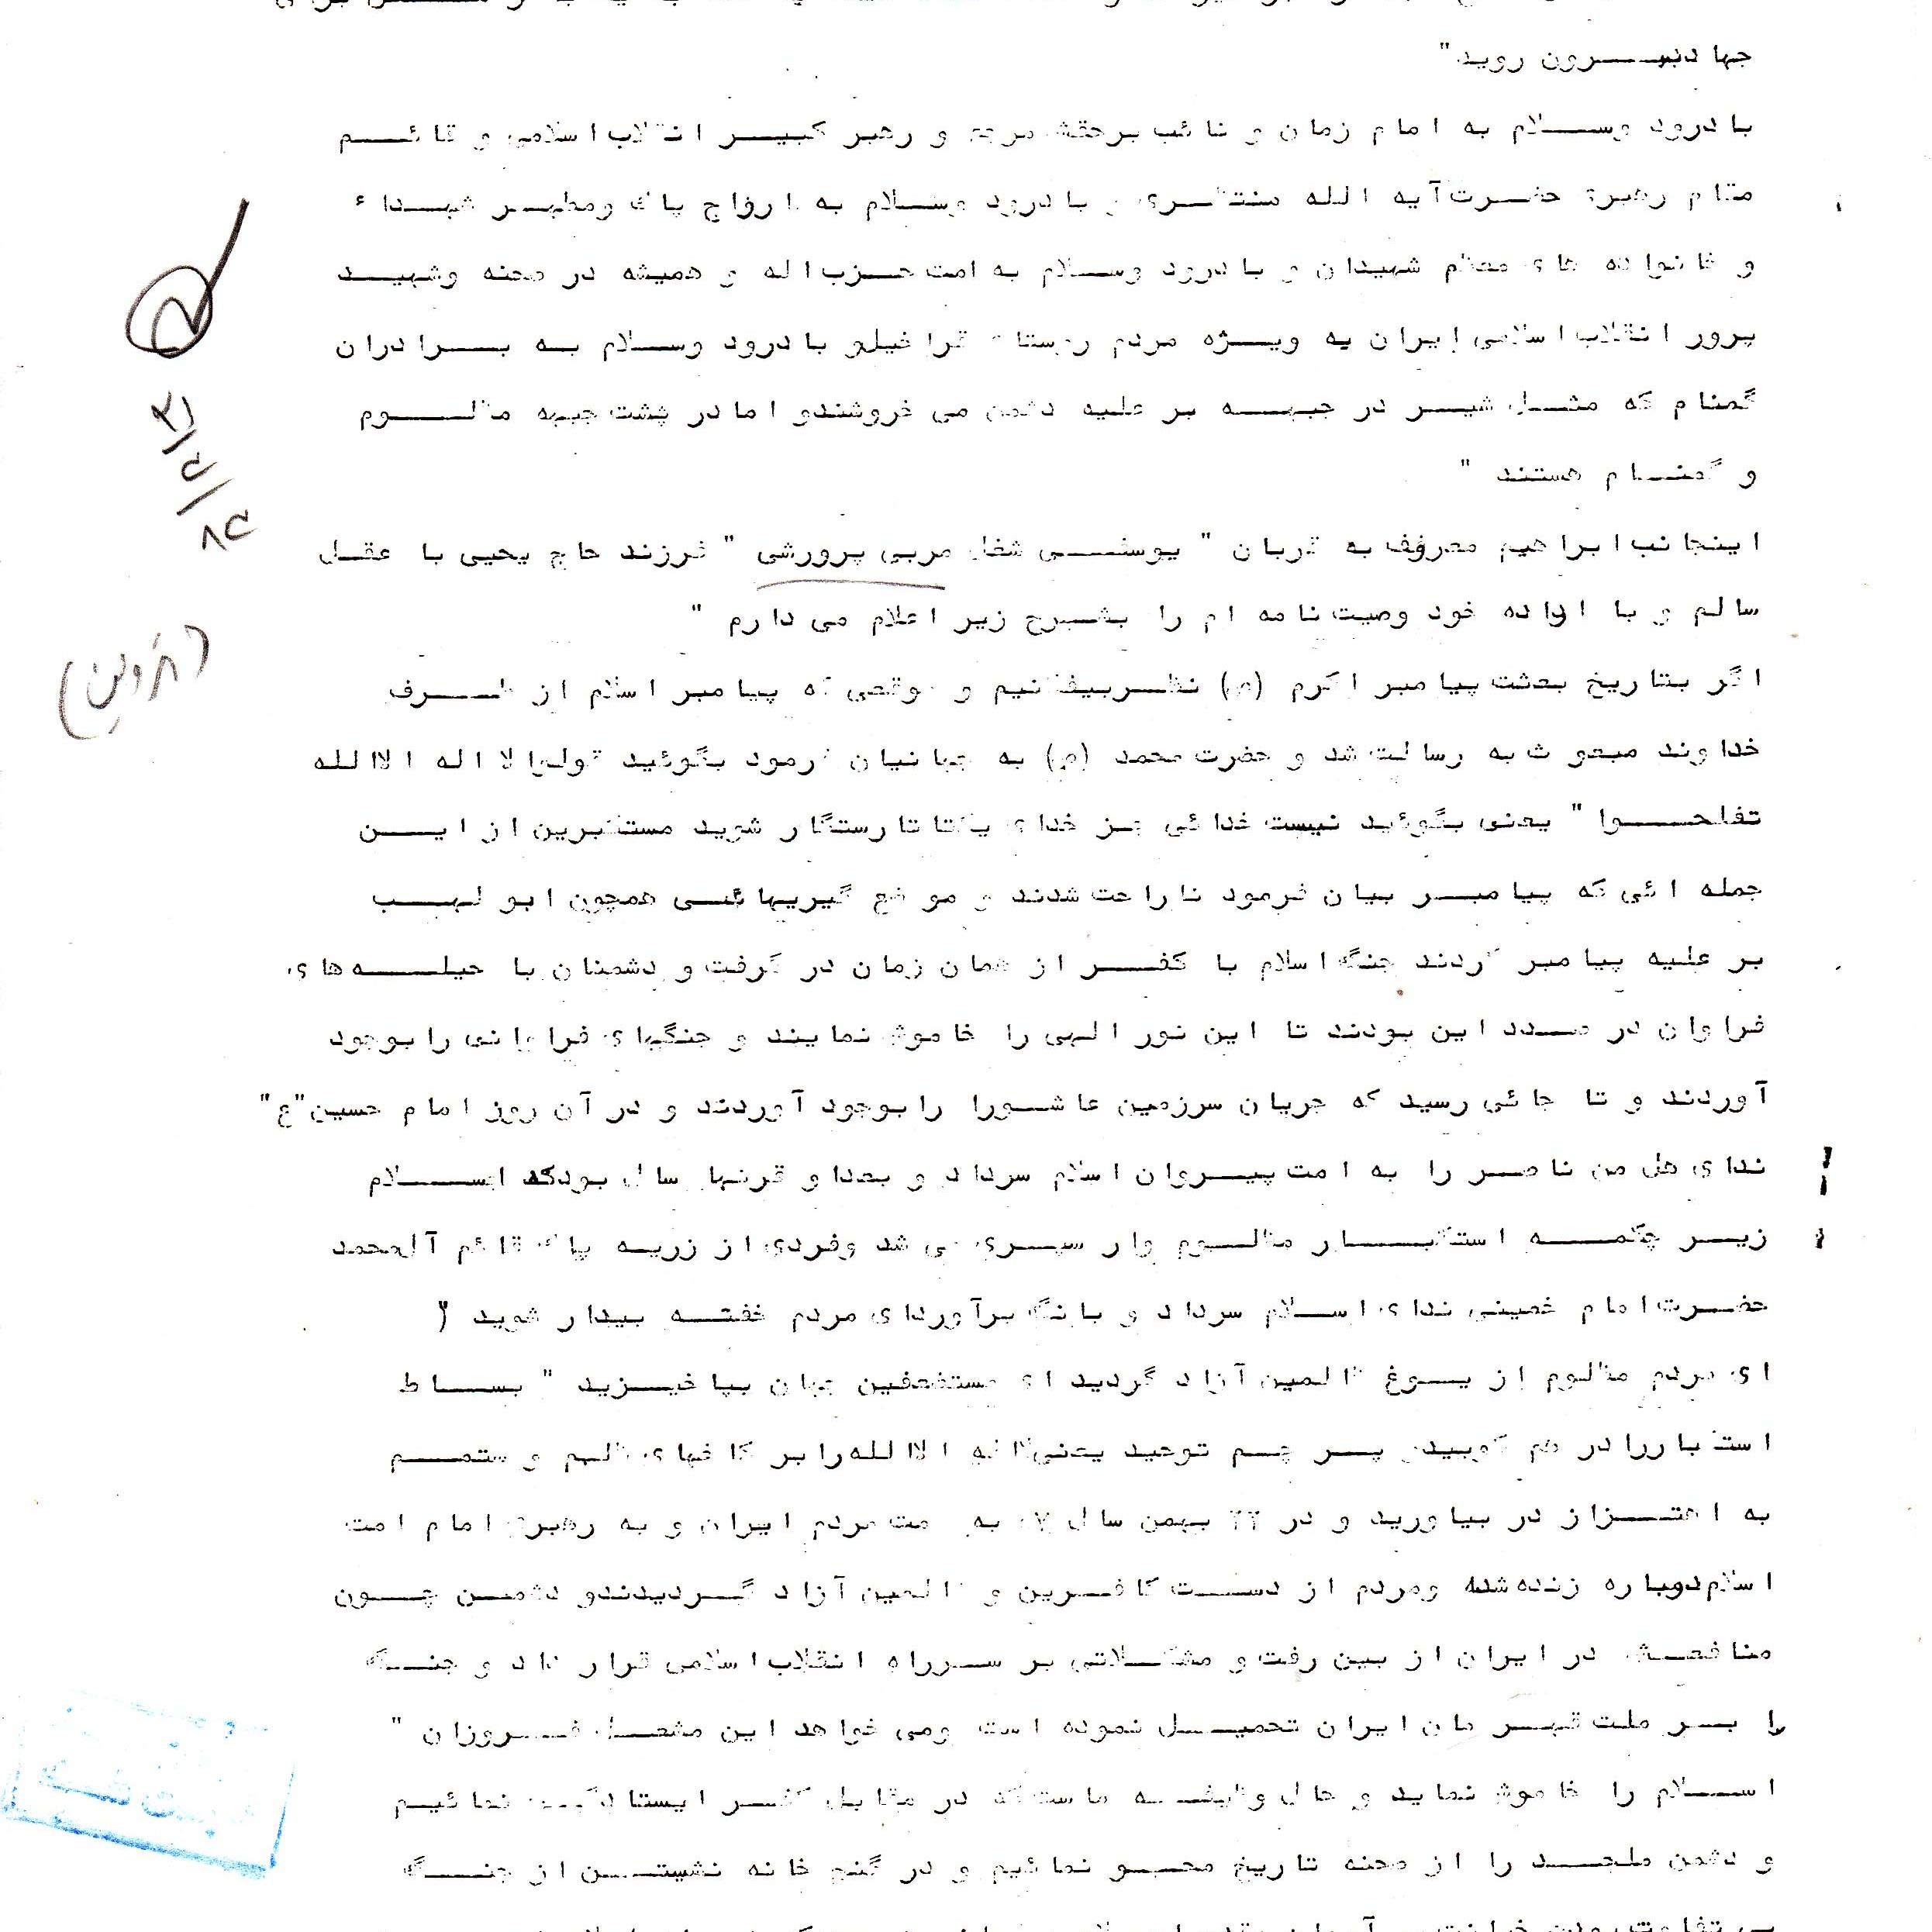 جهاد بیرون روید"
با درود وسلام به امام زمان و نائب برحقش مرجع و رهبر کبیر انقلاب اسلامی و قائم
مقام رهبری حضرت آیه الله منتظری و با درود وسلام به ارواح پاک ومطهر شهداء
و خانواده های معظم شهیدان و با درود وسلام به امت حزب اله و همیشه در صحنه وشهید
پرور انقلاب اسلامی ایران به ویژه مردم روستای قراخیلو با درود وسلام به برادران
گمنام که مثل شیر در جبهه بر علیه دشمن می خروشندو اما در پشت جبهه مظلوم
و گمنام هستند "
اینجانب ابراهیم معروف به قربان " یوسفی شغل مربی پرورشی " فرزند حاج یحیی با عقل
سالم و با اراده خود وصیت نامه ام را بشرح زیر اعلام می دارم "
اگر بتاریخ بعثت پیامبر اکرم (ص) نظربیفکنیم و موقعی که پیامبر اسلام از طرف
خداوند مبعوث به رسالت شد و حضرت محمد (ص) به جهانیان فرمود بگوئید قولوا لا اله الاالله
تفلحوا " یعنی بگوئید نیست خدائی جز خدای یکتا تا رستگار شوید مستکبرین از این
جمله ائی که پیامبر بیان فرمود ناراحت شدند و موضع گیریهائی همچون ابو لهب
بر علیه پیامبر کردند جنگ اسلام با کفر از همان زمان در گرفت و دشمنان با حیله های
فراوان در صدد این بودند تا این نور الهی را خاموش نمایند و جنگهای فراوانی را بوجود
آوردند و تا جائی رسید که جریان سرزمین عاشورا را بوجود آوردند و در آن روز امام حسین"ع"
ندای هل من ناصر را به امت پیروان اسلام سرداد و بعدا و قرنها سال بودکه اسلام
زیر چکمه استکبار مظلوم وار سپری می شد وفردی از زریه پاک قائم آل محمد
حضرت امام خمینی ندای اسلام سرداد و بانگ برآوردای مردم خفته بیدار شوید
ای مردم مظلوم از یوغ ظالمین آزاد گردید ای مستضعفین جهان بپا خیزید " بساط
استکباررا در هم کوبید پرچم توحید یعنی لااله الاالله را بر کاخهای ظلم و ستم
به اهتزاز در بیاورید و در ۲۲ بهمن سال ۵۷ به مت مردم ایران و به رهبری امام امت
اسلام دوباره زنده شد ومردم از دست کافرین و ظالمین آزاد گردیدندو دشمن چون
منافعش در ایران از بین رفت و مشکلاتی بر سرراه انقلاب اسلامی قرار داد و جنگ
را بر ملت قهرمان ایران تحمیل نموده است ومی خواهد این مشعل فروزان "
اسلام را خاموش نماید و حال وظیفه ماست که در مقابل کفر ایستادگی نمائیم
و دشمن ملحد را از صحنه تاریخ محو نمائیم و در گنج خانه نشستن از جنگ
(قزوین)